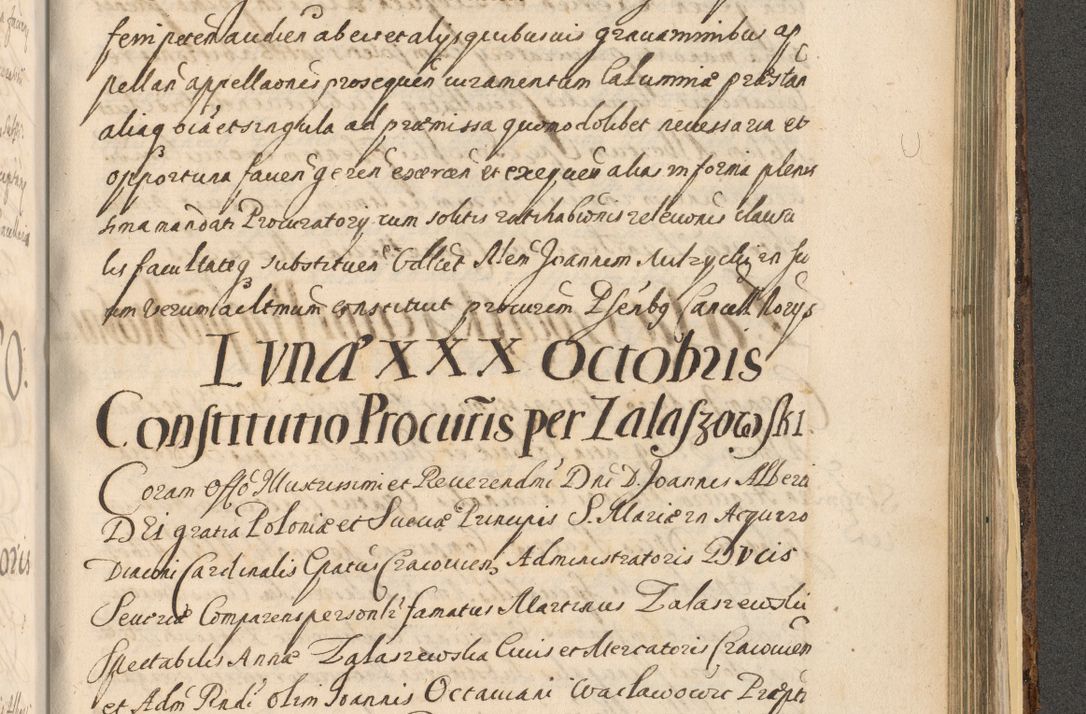 feri peten audien ab eis et alys quibusuis grauaminibus ap
pellan appellaones prosequen iuramentum Calumniæ præstan
aliaq oia et singula ad præmissa quomodolibet necessaria et
opportuna facien geren exercen et exequen alias in forma plenis
sima mandati Procuratory cum solitis ratihabionis releuonis clausu
lis facultateq substituen
um verum ac ltmum constituit procurem Psenbq Cancell Norys
LVNÆ XXX OCTobris
Constitutio Procuris per Zalaszowski.
Coram Offo Illustrissimi et Reuerendmi Dni D. Joannis Alberti
DEI gratia Poloniæ et Sueciæ Principis S. Mariæ in Acquirro
Diaconi Cardinalis Epatus Cracouien Administratoris Ducis
Seueriæ Comparens personlr famatus Martinus Zalaszewski
Spectabilis Annæ Zalaszewska Ciuis et Mercatoris Cracouien
et Adm Rndi olim Joannis Octauiani Wacławowic Præpti